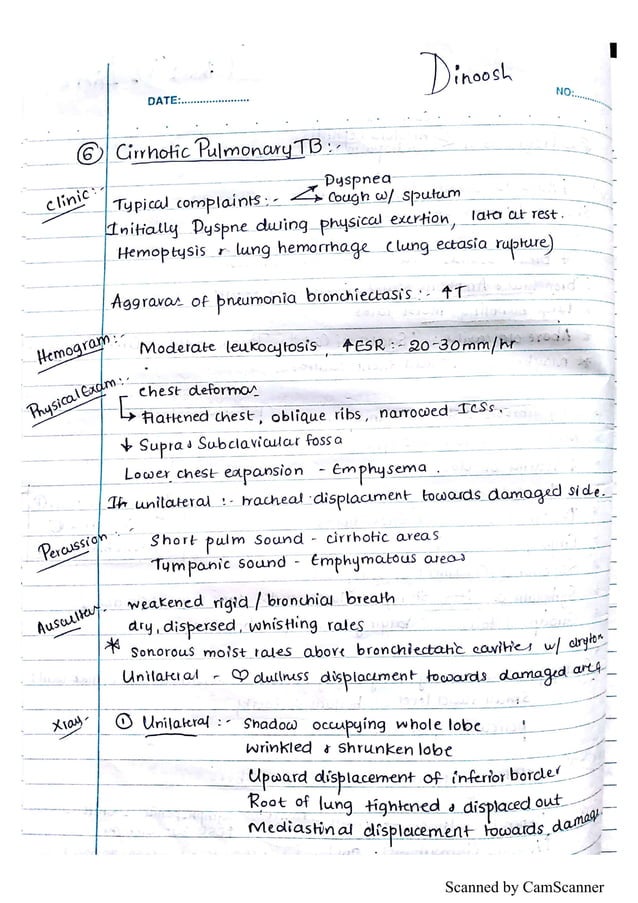 Dinoosh
DATE:......................
NO:......
⑥ Cirrhotic Pulmonary TB :-
Clinic :- Typical complaints :- → Dyspnea
→ Cough w/ sputum
Initially Dyspne during physical exertion, lata at rest.
Hemoptysis & lung hemorrhage (lung ectasia rupture)
Aggravas of pneumonia bronchiectasis :- ↑T
Hemogram :- Moderate leukocytosis, ↑ESR :- 20-30mm/hr
Physical Exam :- chest deformas
→ Flattened chest, oblique ribs, narrowed ICSs.
↓ Supra & Subclavicular fossa
Lower chest expansion - Emphysema.
In unilateral :- tracheal displacement towards damaged side.
Percussion :- Short pulm sound - cirrhotic areas
Tympanic sound - Emphymatous areas
Auscultas. weakened rigid / bronchial breath
dry, dispersed, whistling rales
* Sonorous moist rales above bronchiectatic cavities w/
Unilateral - ♡ dullness displacement towards damaged area
Xray - ① Unilateral :- Shadow occupying whole lobe
Wrinkled & shrunken lobe
Upward displacement of inferior border
Root of lung tightened & displaced out
Mediastinal displacement towards damage
Scanned by CamScanner